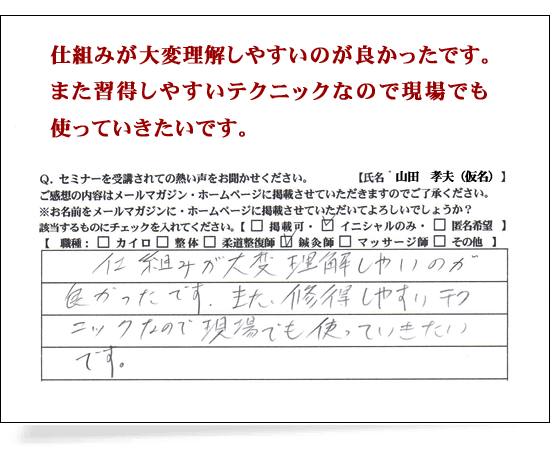 仕組みが大変理解しやすいのが良かったです。
また習得しやすいテクニックなので現場でも
使っていきたいです。
Q．セミナーを受講されての熱い声をお聞かせください。　【氏名　山田　孝夫（仮名）】
ご感想の内容はメールマガジン・ホームページに掲載させていただきますのでご了承ください。
※お名前をメールマガジンに・ホームページに掲載させていただいてよろしいでしょうか？
該当するものにチェックを入れてください。【 □ 掲載可・ ☑ イニシャルのみ・ □ 匿名希望 】
【 職種： □ カイロ □ 整体 □ 柔道整復師 ☑ 鍼灸師 □ マッサージ師 □ その他 】
仕組みが大変理解しやいのが
良かったです。また、修得しやすいテク
ニックなので現場でも使っていきたい
です。